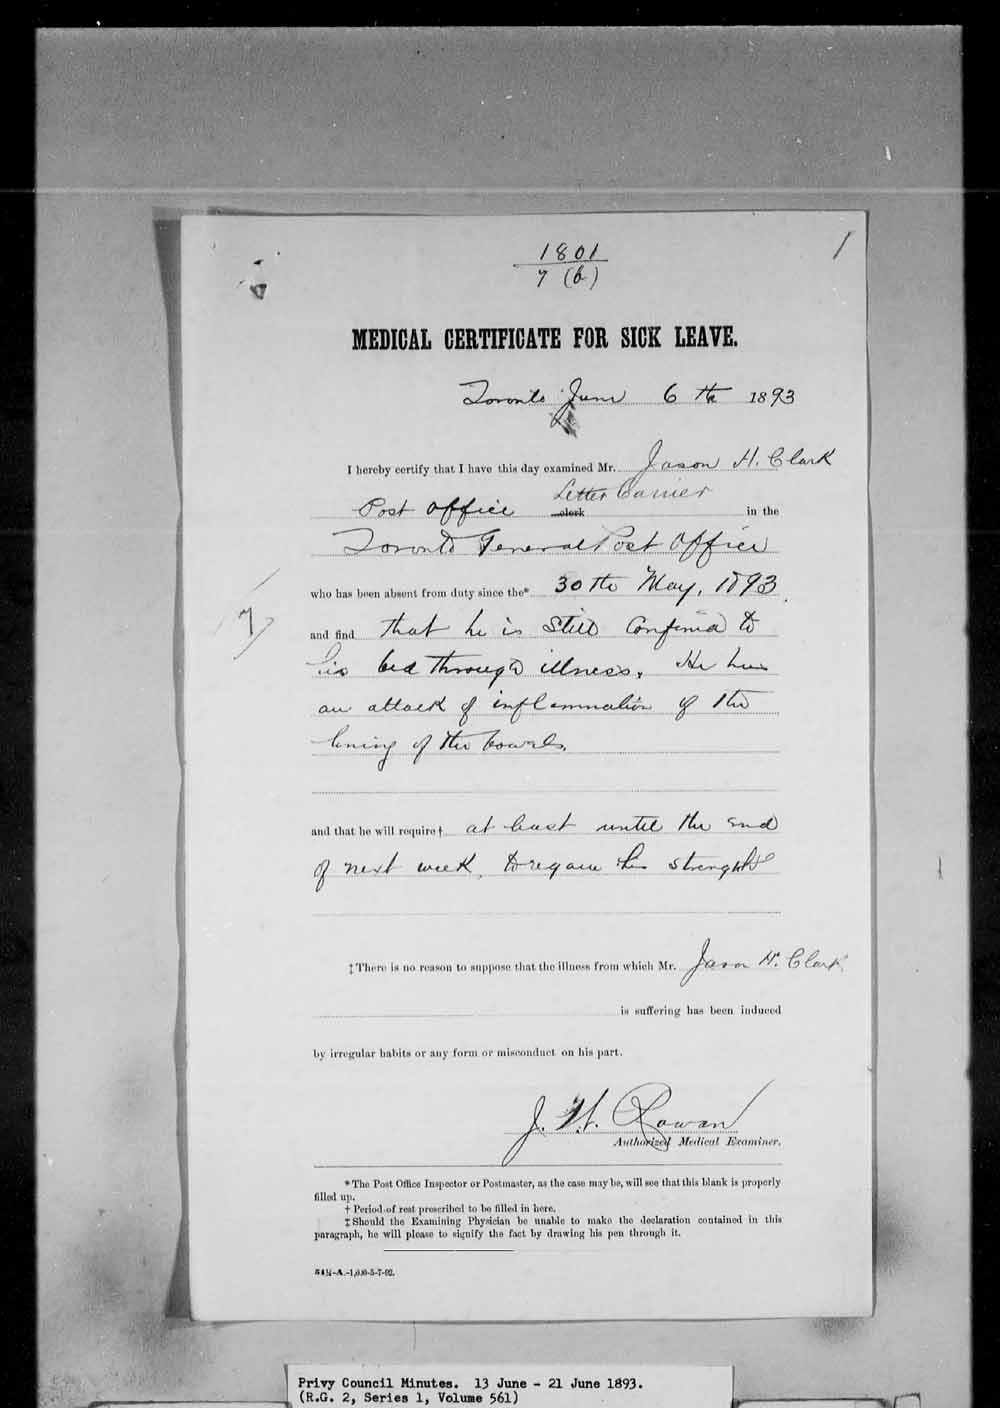 1801
7 (b)
1
MEDICAL CERTIFICATE FOR SICK LEAVE.
Toronto June 6th 1893
I hereby certify that I have this day examined Mr. Jason H. Clark
Letter Carrier
Post Office clerk in the
Toronto General Post Office
who has been absent from duty since the* 30th May, 1893
7
and find that he is still confined to
his bed through illness. He has
an attack of inflammation of the
lining of the bowels.
and that he will require† at least until the end
of next week, to regain his strenght
‡There is no reason to suppose that the illness from which Mr. Jason H. Clark
is suffering has been induced
by irregular habits or any form or misconduct on his part.
J. H. Rowan
Authorized Medical Examiner.
*The Post Office Inspector or Postmaster, as the case may be, will see that this blank is properly
filled up.
† Period of rest prescribed to be filled in here.
‡Should the Examining Physician be unable to make the declaration contained in this
paragraph, he will please to signify the fact by drawing his pen through it.
54½-A.-1,000-5-7-92.
Privy Council Minutes. 13 June - 21 June 1893.
(R.G. 2, Series 1, Volume 561)